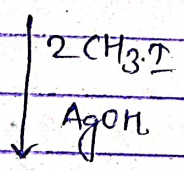 2 CH3.I
AgOH